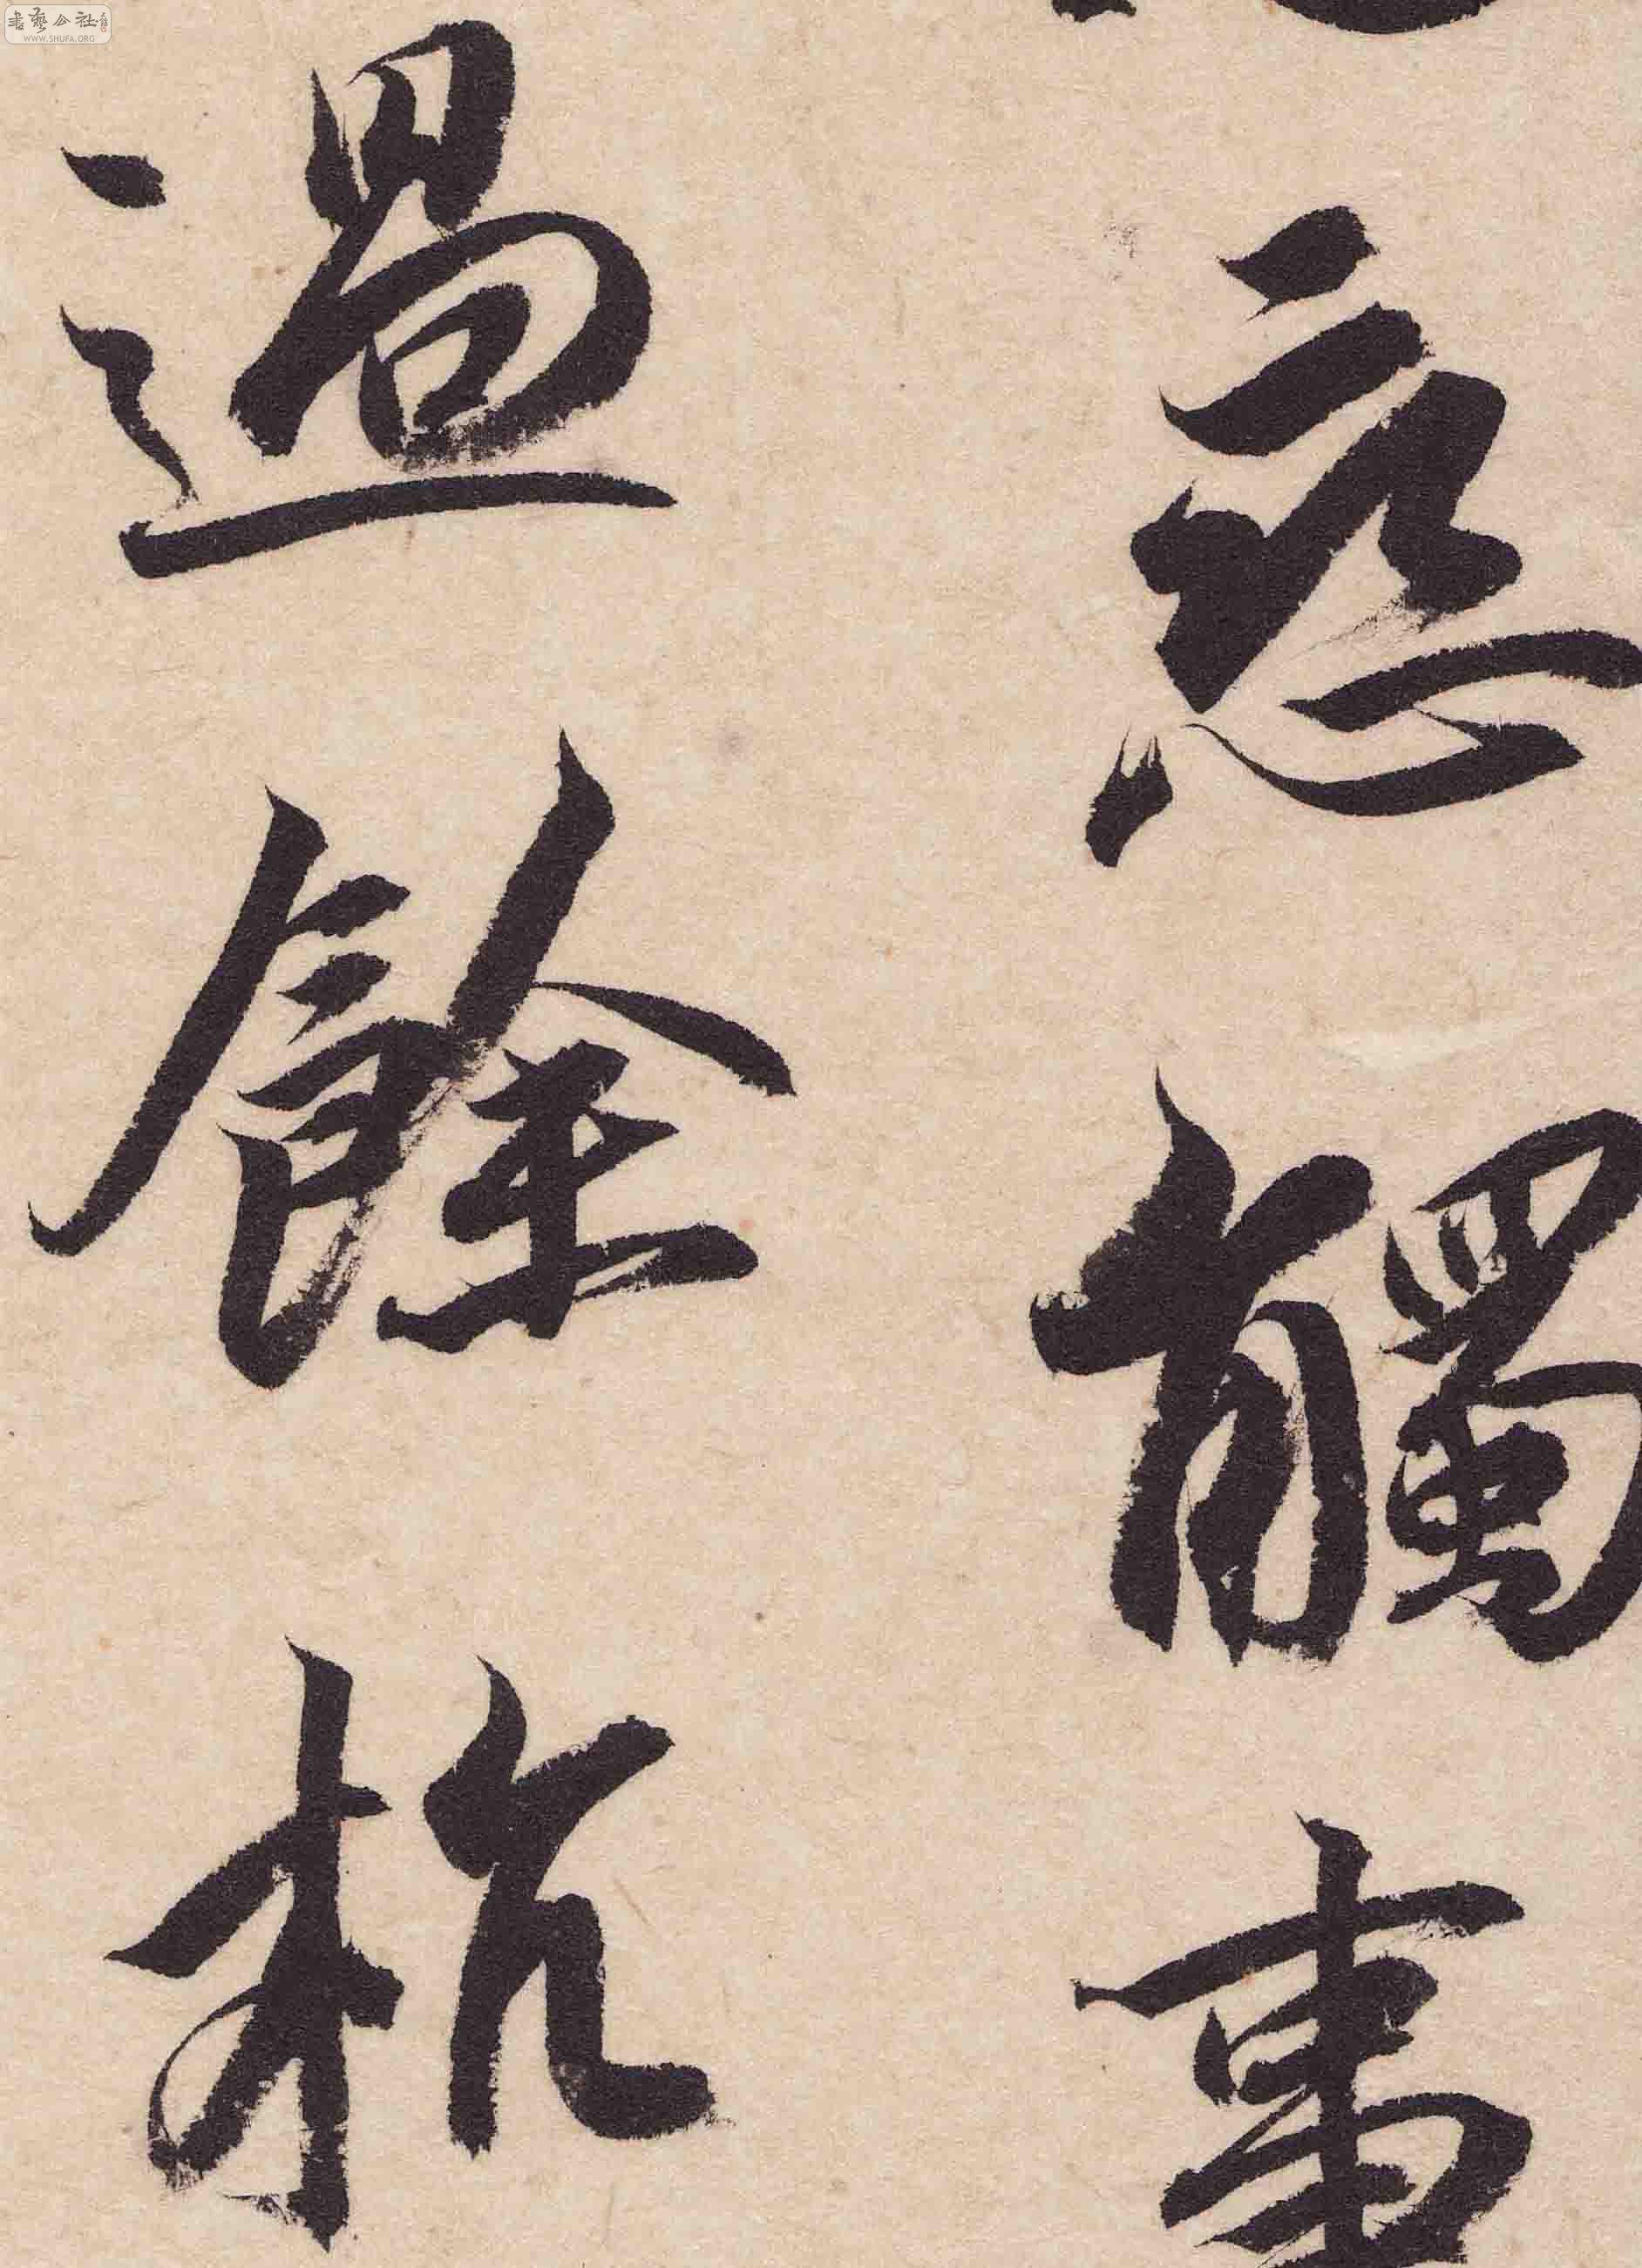 書藝公社
WWW.SHUFA.ORG
觸事
過餘杭